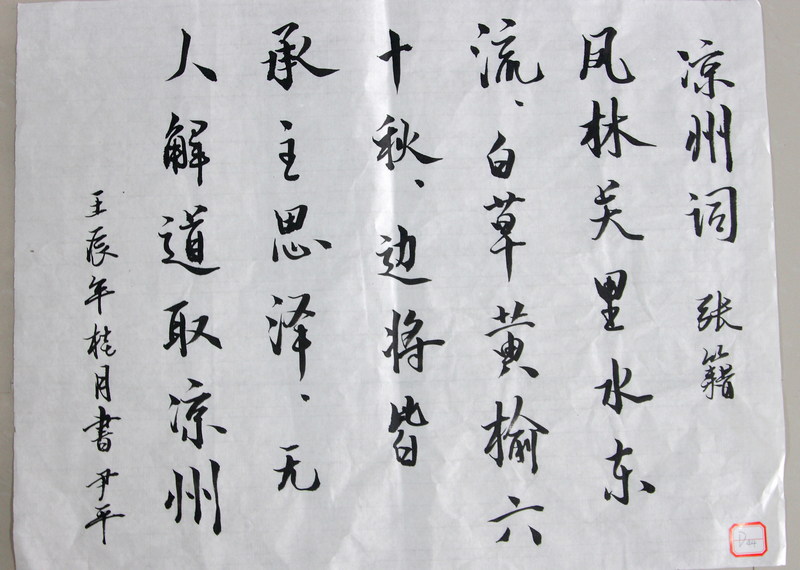 凉州词 张籍
凤林关里水东
流、白草黄榆六
十秋、边将皆
承主恩泽、无
人解道取凉州
壬辰年桂月书 尹平